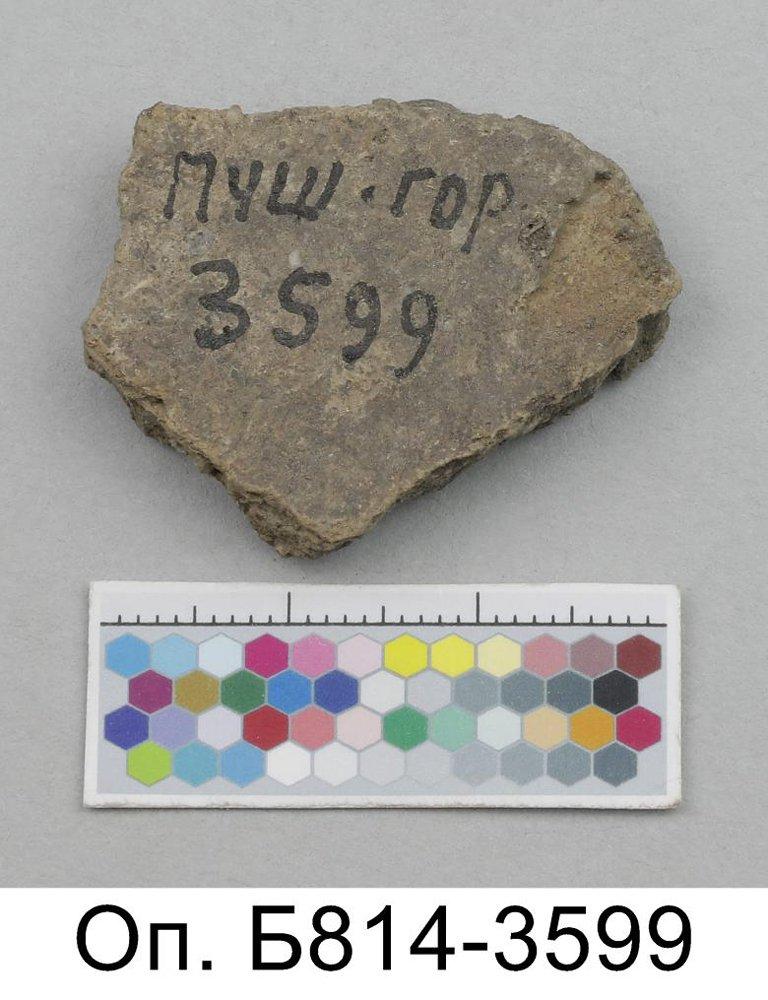 Муш. гор.
3599
Оп. Б814-3599